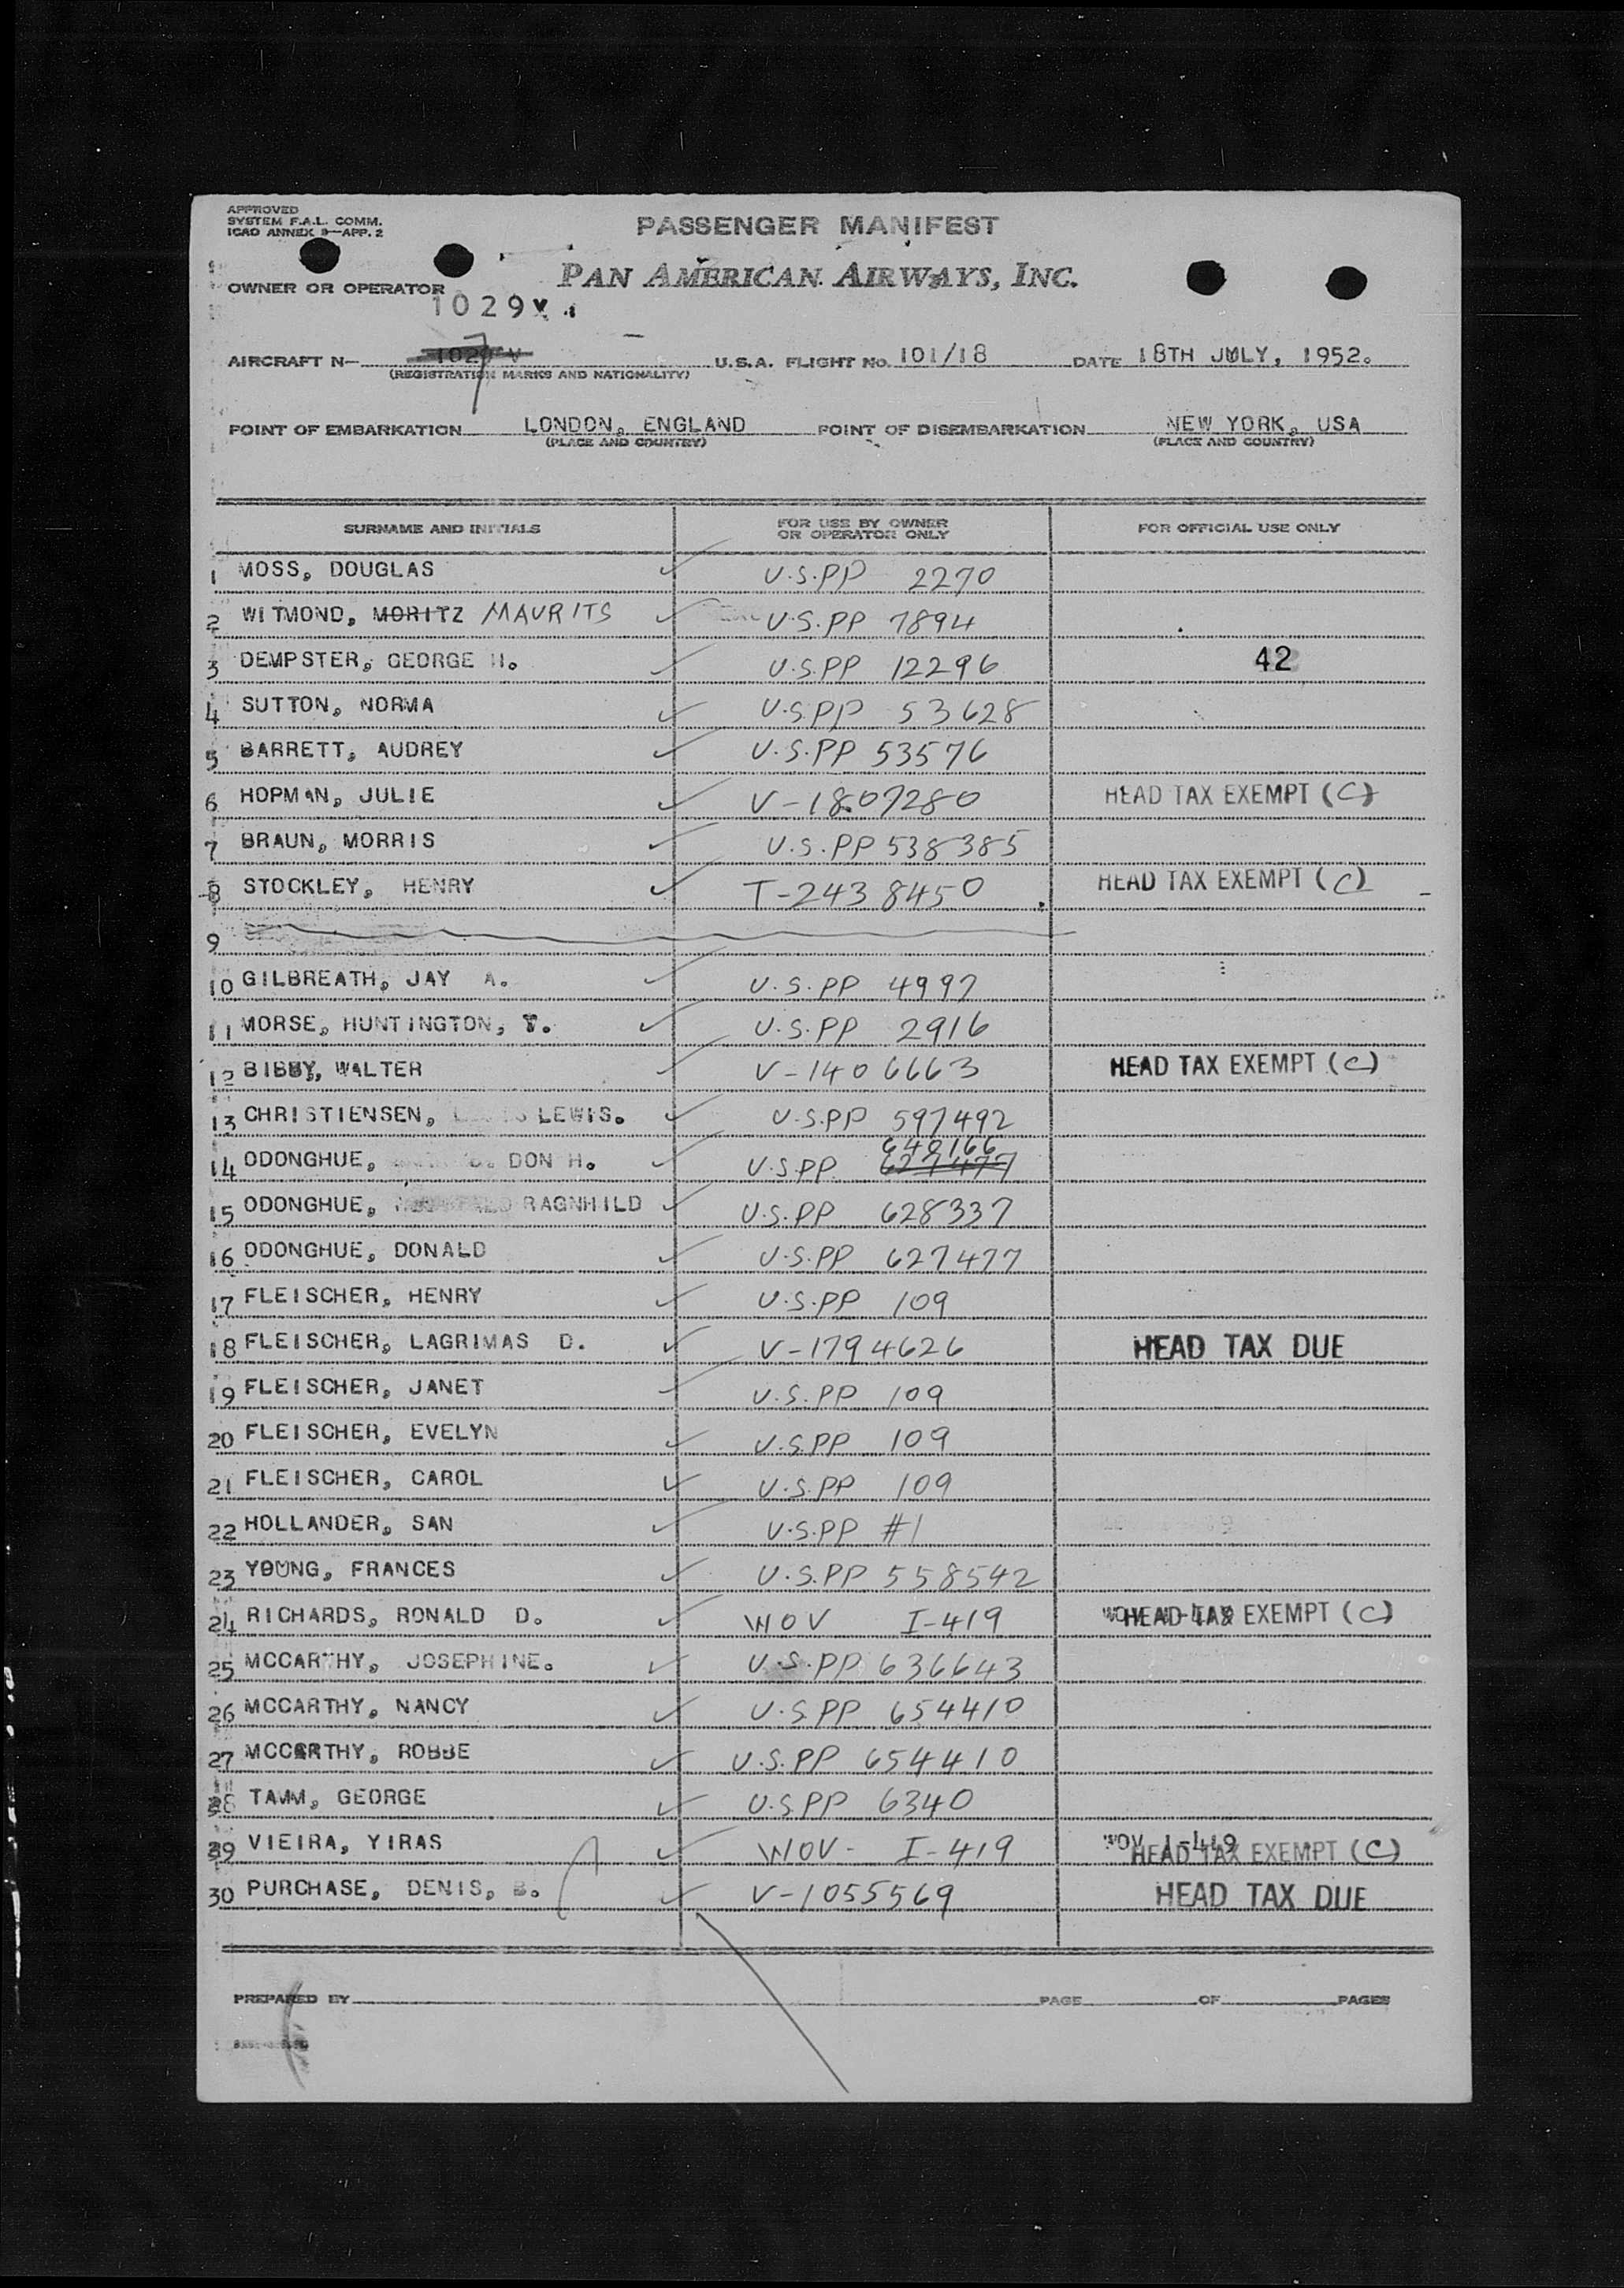 APPROVED
SYSTEM F.A.L. COMM.
ICAO ANNEX 9—APP. 2
PASSENGER MANIFEST
PAN AMERICAN AIRWAYS, INC.
OWNER OR OPERATOR
1029V
AIRCRAFT N— U.S.A. FLIGHT NO. 101/18 DATE 18TH JULY, 1952.
(REGISTRATION MARKS AND NATIONALITY)
POINT OF EMBARKATION LONDON, ENGLAND POINT OF DISEMBARKATION NEW YORK, USA
(PLACE AND COUNTRY) (PLACE AND COUNTRY)
SURNAME AND INITIALS FOR USE BY OWNER OR OPERATOR ONLY FOR OFFICIAL USE ONLY
1 MOSS, DOUGLAS U.S.PP 2270
2 WITMOND, MORITZ MAURITS U.S.PP 7894
3 DEMPSTER, GEORGE H. U.S.PP 12296 42
4 SUTTON, NORMA U.S.PP 53628
5 BARRETT, AUDREY U.S.PP 53576
6 HOPMAN, JULIE V-1807280 HEAD TAX EXEMPT (C)
7 BRAUN, MORRIS U.S.PP 538385
8 STOCKLEY, HENRY T-2438450 HEAD TAX EXEMPT (C)
9
10 GILBREATH, JAY A. U.S.PP 4997
11 MORSE, HUNTINGTON, T. U.S.PP 2916
12 BIBBY, WALTER V-1406663 HEAD TAX EXEMPT (C)
13 CHRISTIENSEN, LEWIS. U.S.PP 597492
14 ODONGHUE, DON H. U.S.PP 627477 640166
15 ODONGHUE, RAGNHILD U.S.PP 628337
16 ODONGHUE, DONALD U.S.PP 627477
17 FLEISCHER, HENRY U.S.PP 109
18 FLEISCHER, LAGRIMAS D. V-1794626 HEAD TAX DUE
19 FLEISCHER, JANET U.S.PP 109
20 FLEISCHER, EVELYN U.S.PP 109
21 FLEISCHER, CAROL U.S.PP 109
22 HOLLANDER, SAN U.S.PP #1
23 YOUNG, FRANCES U.S.PP 558542
24 RICHARDS, RONALD D. WOV I-419 HEAD TAX EXEMPT (C)
25 MCCARTHY, JOSEPHINE. U.S.PP 636643
26 MCCARTHY, NANCY U.S.PP 654410
27 MCCARTHY, ROBBE U.S.PP 654410
28 TAMM, GEORGE U.S.PP 6340
29 VIEIRA, YIRAS WOV- I-419 WOV I-419 HEAD TAX EXEMPT (C)
30 PURCHASE, DENIS, B. V-1055569 HEAD TAX DUE
PREPARED BY PAGE OF PAGES